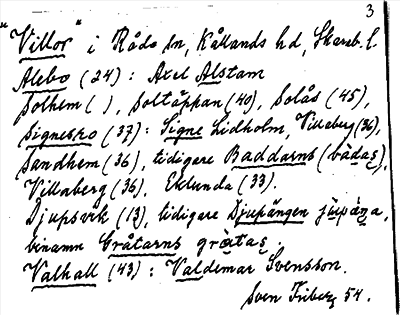 3
"Villor" i Råda sn, Kållands hd, Skarab. l.
Alebo (24): Axel Alstam
Solhem ( ), Soltäppan (40), Solås (45),
Signesro (37): Signe Lidholm, Villaberg (36),
Sandhem (36), tidigare Baddarns (bádas),
Villaberg (36), Eklunda (33).
Djupsvik (13), tidigare Djupängen
binamn Gråtarns
Valhall (43): Valdemar Svensson.
Sven Friberg 54.